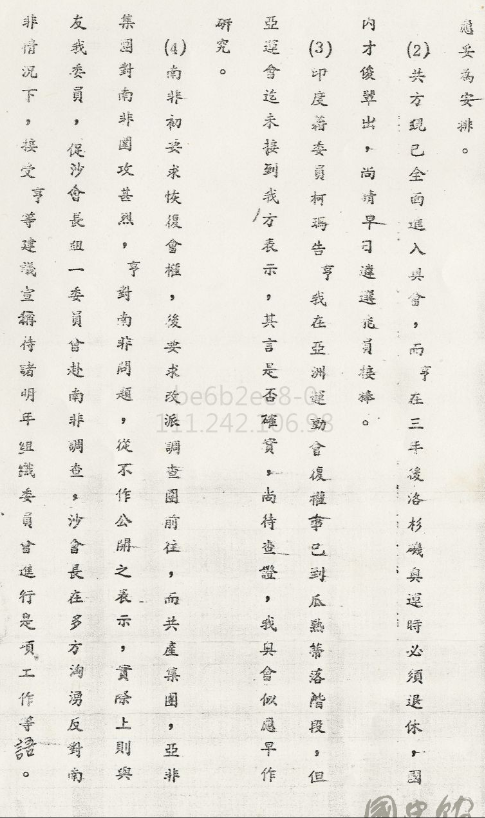 應妥為安排。
(2)共方現已全面進入奧會,而亨在三年後洛杉磯奧運時必須退休,國
內才俊輩出,尚請早日遴選能員接棒。
(3)印度籍委員柯瑪告亨我在亞洲運動會復權事已到瓜熟蒂落階段,但
亞運會迄未接到我方表示,其言是否確實,尚待查證,我奧會似應早作
研究。
(4)南非初要求恢復會權,後要求改派調查團前往,而共產集團,亞非
集團對南非國攻甚烈,亨對南非問題,從不作公開之表示,實際上則與
友我委員,促沙會長組一委員會赴南非調查,沙會長在多方洶湧反對南
非情況下,接受亨等建議宣稱待諸明年組織委員會進行是項工作等語。
be6b2ec8-0
111.242.106.98
國史館